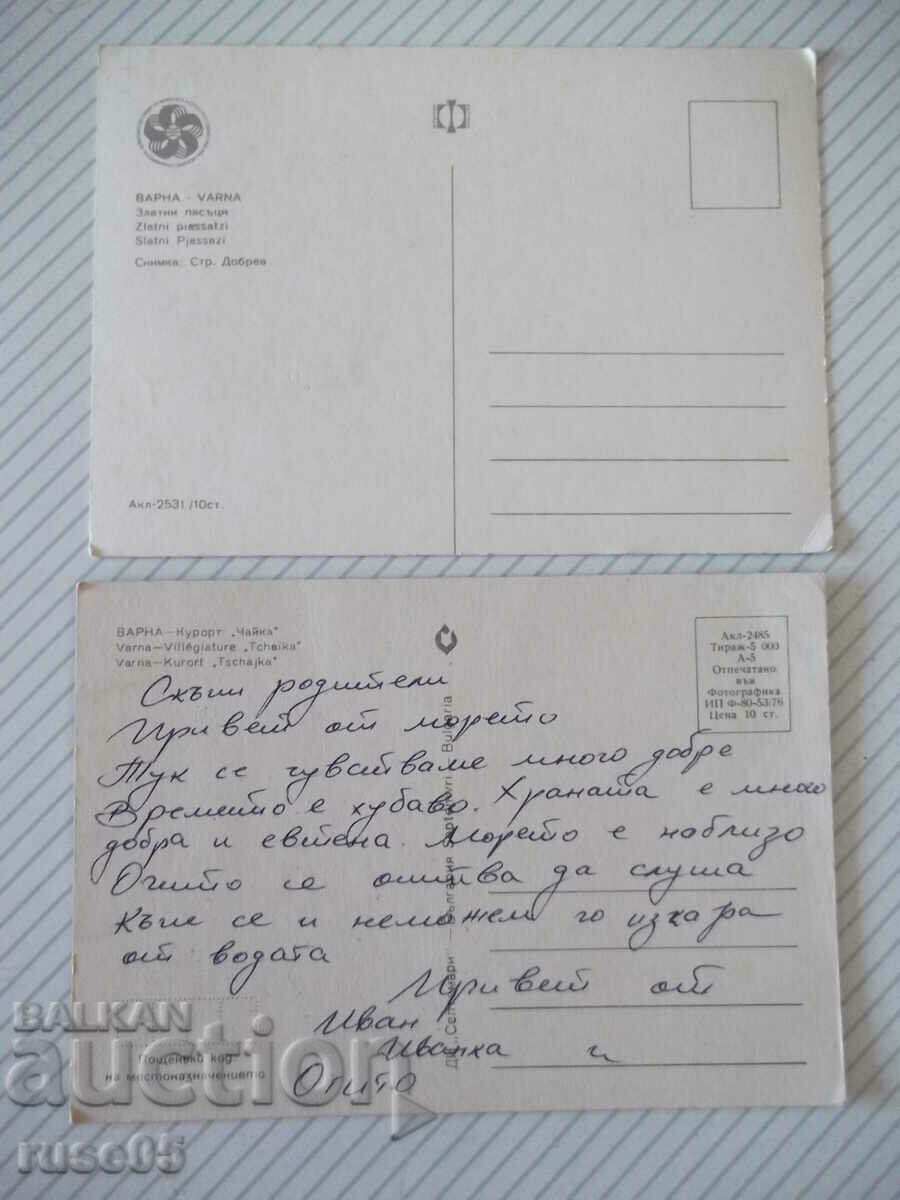 ВАРНА - VARNA
Златни пясъци
Zlatni piassatzi
Slatni Pjassazi
Снимка: Стр. Добрев
Акл-2531/10ст.
ВАРНА—Курорт „Чайка"
Varna—Villégiature „Tchaika"
Varna—Kurort „Tschajka"
Акл-2485
Тираж-5 000
А-5
Отпечатано
във
Фотографика
ИП Ф-80-53/76
Цена 10 ст.
Скъпи родители
Привет от морето
Тук се чувстваме много добре
Времето е хубаво. Храната е много
добра и евтена. Морето е наблизо
Огито се опитва да слуша
Къпе се и неможем го изкара
от водата
Привет от
Иван
Иванка и
Огито
България
Bulgaria
Пощенски код
на местоназначението
BALKAN
auction
ruse05